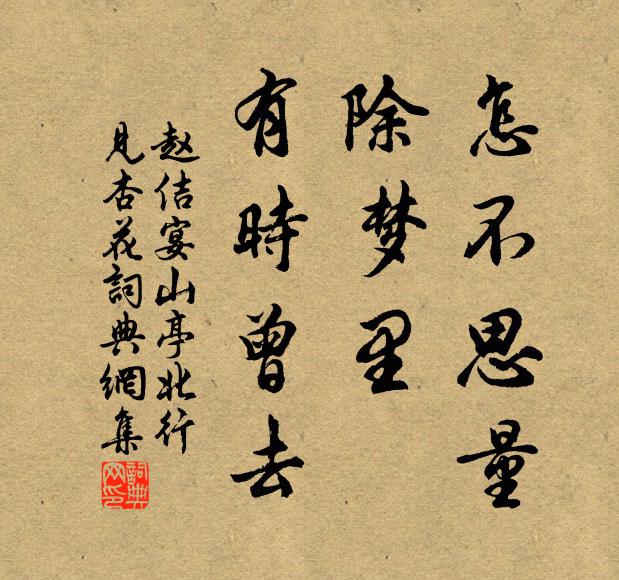 怎不思量
除梦里
有時曾去
赵佶宴山亭北行
見杏花詞典網集
詞典网印